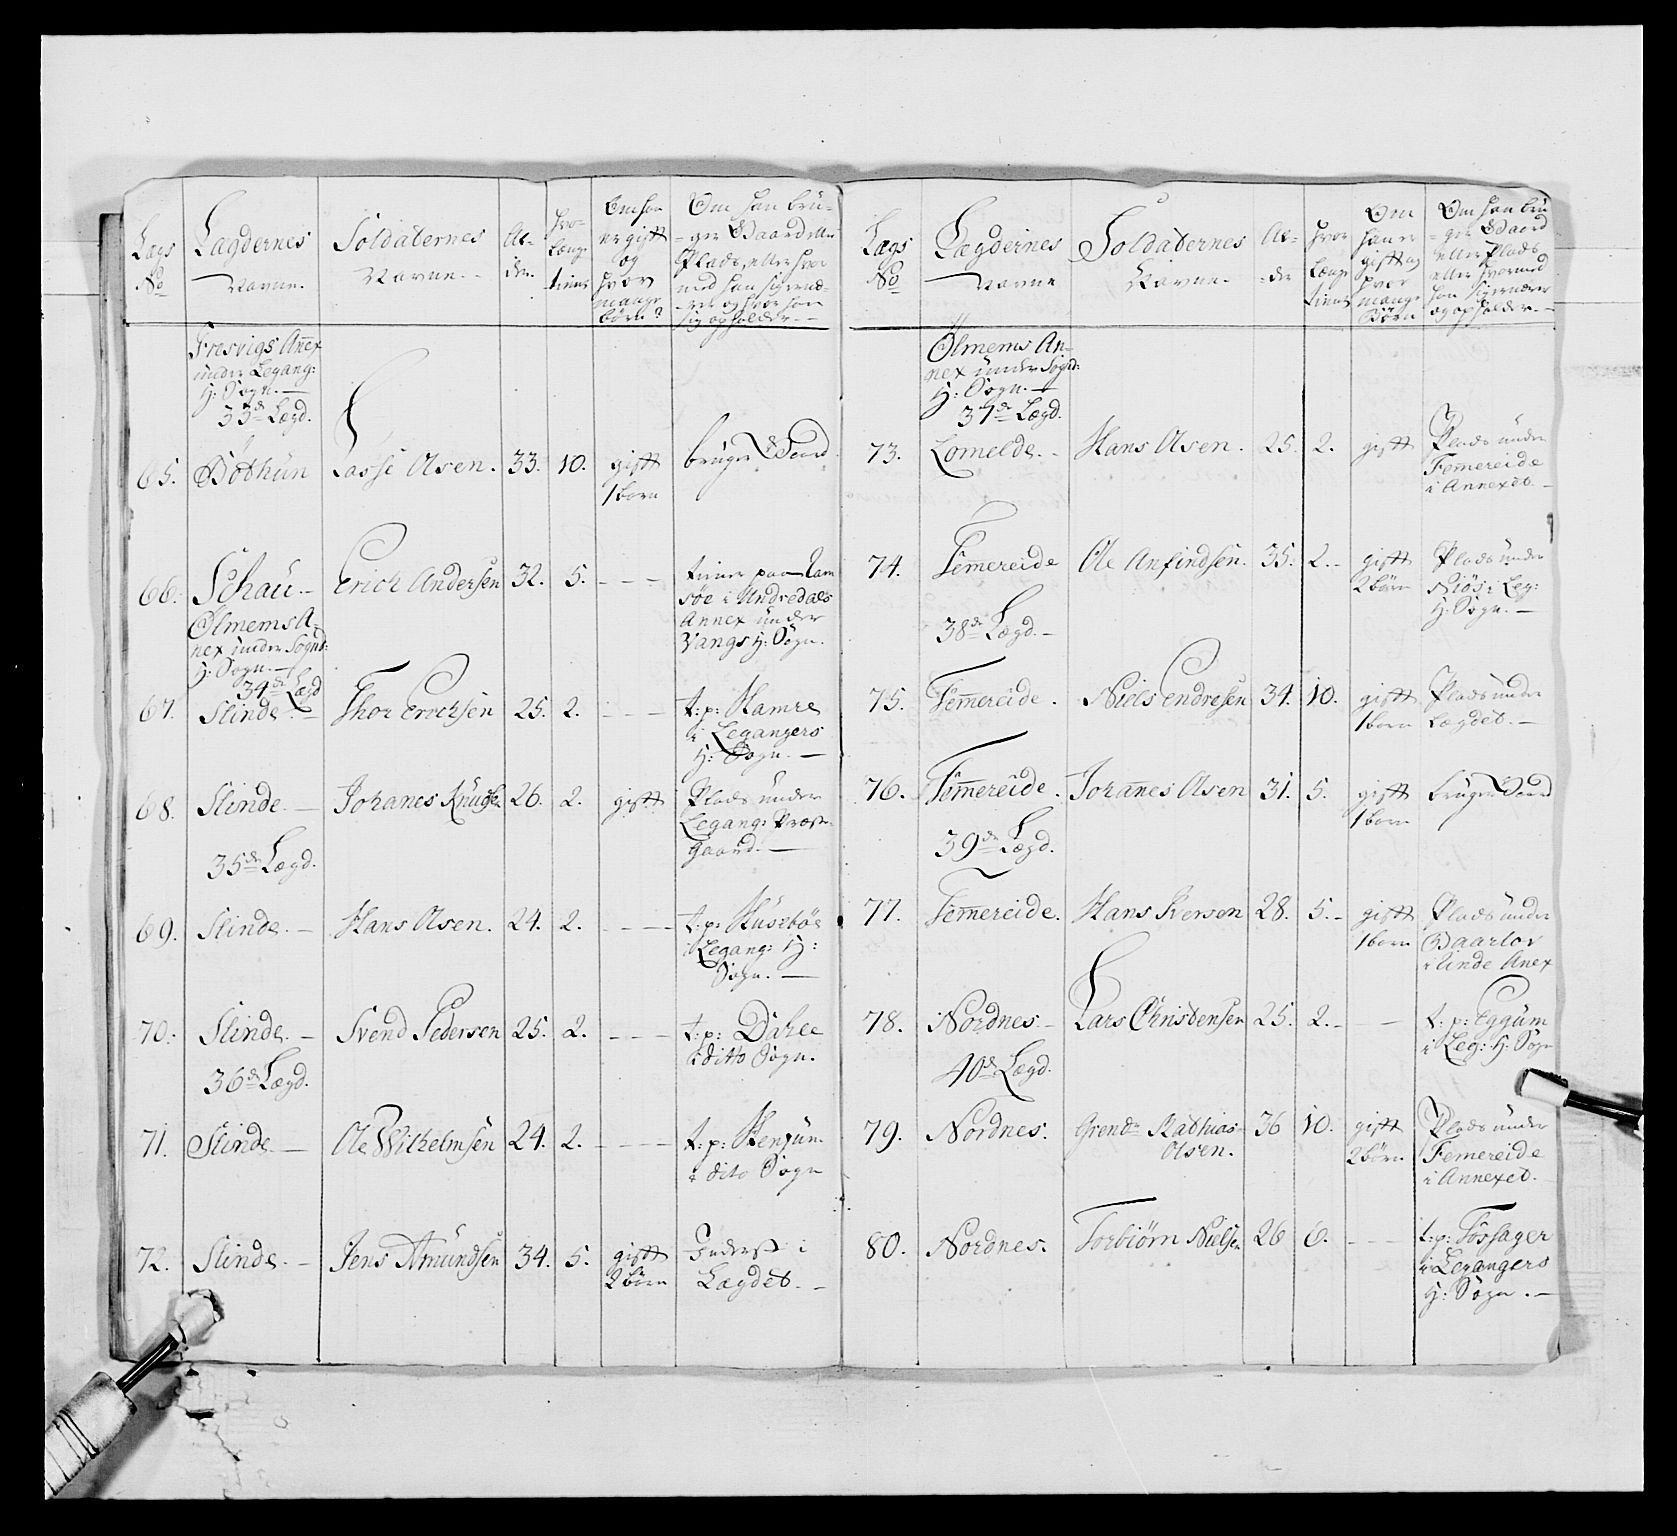 Lægs No
Lægdernes Navne.
Soldaternes Navne.
Al-der
hvor Længe tient
Om han er gift og hvor mange börn?
Om han brü-ger Gaard eller Plads, eller hvor med han sig ernæ-rer og hvor han sig opholder.
Fresvigs Anex
under Legang:
H: Sogn. —
33de Lægd.
65. Böthün Lasse Olsen. 33. 10. gift brüger Gaard
1 barn
66. Schaü. Erich Andersen 32. 5. - - - tiener paa Ram
söe i Undredals
Annex under
Vangs H: Sogn.
Olmems A-
nex under Sognd:
H: Sogn. —
34de Lægd
67. Slinde. Thor Erichsen 25. 2. - - - t: p: Hamre
i Legangers
H: Sogn. —
68. Slinde. — Johanes Knudsen 26. 2. gift Plads under
Legang: Præste-
gaard. —
35de Lægd.
69. Slinde. — Hans Olsen. 24. 2. - - - t: p: Hüseböe
i Legang: H:
Sogn. —
70. Slinde. — Svend Pedersen 25. 2. - - - t: p: Dahle
i ditto Sogn.
36de Lægd.
71. Slinde. — Ole Wilhelmsen 24. 2. - - - t: p: Henjüm
i dito Sogn
72. Slinde. — Jens Amündsen 34. 5. gift Inderst i
2 börn Lægdet. —
Lægs No
Lægdernes Navne
Soldaternes Navne.
Al-der
hvor Længe tient
Om han er gift og hvor mange Börn
Om han brü-ger Gaard eller Plads eller hvormed han sig ernærer og opholder.
Olmems An-
nex under Sognd:
H: Sogn. —
37de Lægd.
73. Lomelde. Hans Olsen. 25. 2. gift Plads under
Femereide
i Annexet.
74. Femereide Ole Anfindsen. 35. 2. gift Plads under
2 börn Niös i Leg:
H: Sogn. —
38de Lægd. —
75. Femereide. Niels Endresen 34. 10. gift Plads under
1 barn Lægdet. —
76. Femereide. Johanes Olsen 31. 5. gift brüger Gaard
1 barn
39de Lægd.
77. Femereide. Hans Iversen 28. 5. gift Plads under
1 barn
Anex
78. Nordnes. Lars Christensen 25. 2. - — t: p: Eggüm
i Leg: H: Sogn
40de Lægd.
79. Nordnes. Grend: Mathias 36 10. gift Plads under
Olsen. 2 börn Femereide
i Annexet.
80. Nordnes. Torbiörn Nielsen 26 6. - - - t: p: Fossager
i Legangers
H: Sogn. —